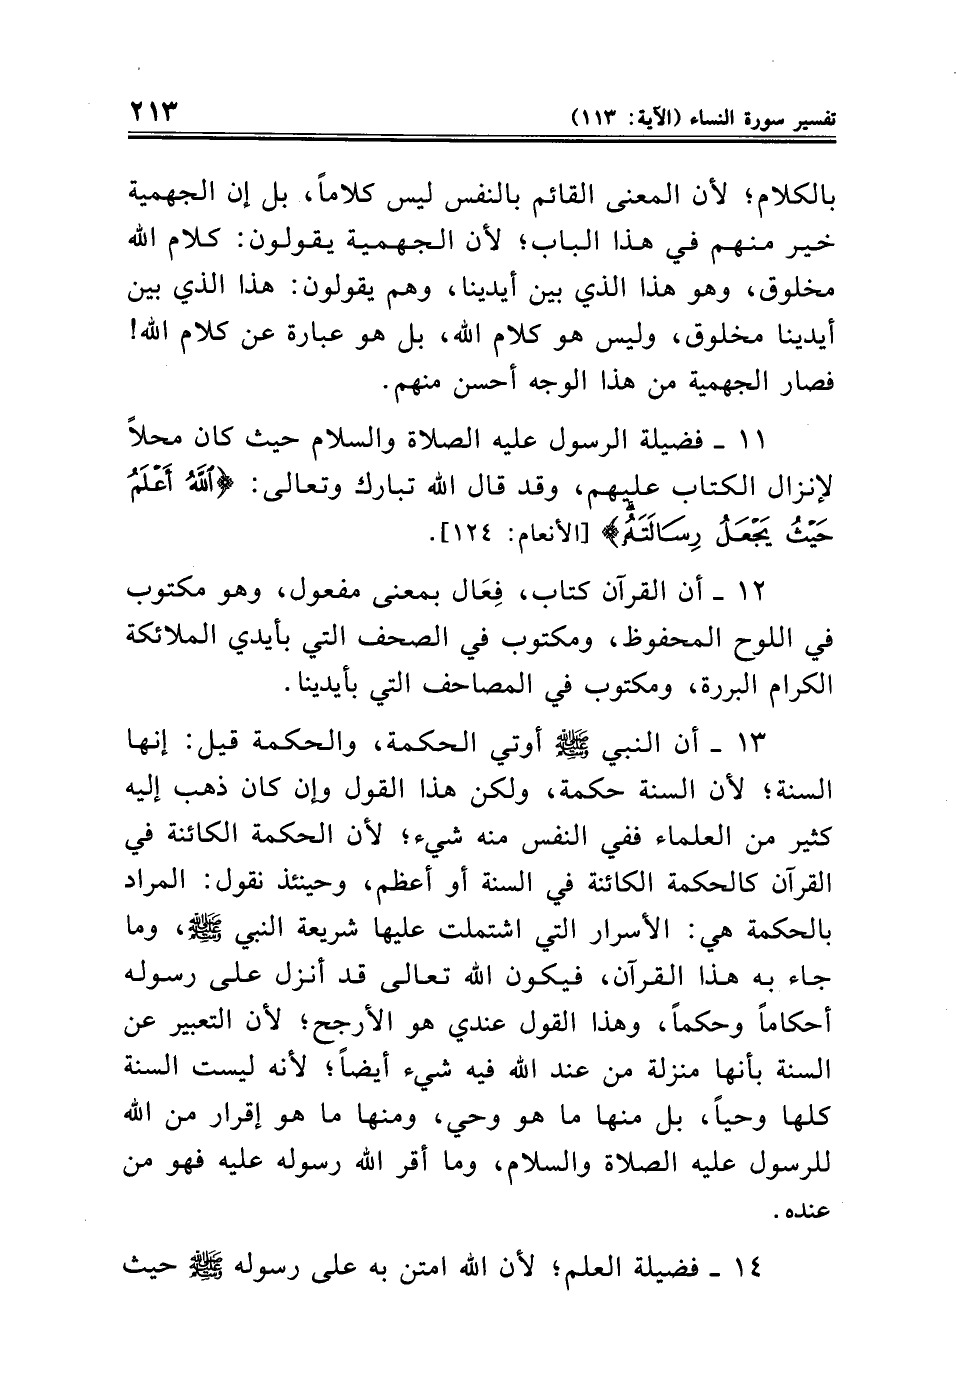 تفسير سورة النساء (الآية: ١١٣) ٢١٣
بالكلام؛ لأن المعنى القائم بالنفس ليس كلاماً، بل إن الجهمية
خير منهم في هذا الباب؛ لأن الجهمية يقولون: كلام الله
مخلوق، وهو هذا الذي بين أيدينا، وهم يقولون: هذا الذي بين
أيدينا مخلوق، وليس هو كلام الله، بل هو عبارة عن كلام الله!
فصار الجهمية من هذا الوجه أحسن منهم.
١١ ـ فضيلة الرسول عليه الصلاة والسلام حيث كان محلاً
لإنزال الكتاب عليهم، وقد قال الله تبارك وتعالى: ﴿اللَّهُ أَعْلَمُ
حَيْثُ يَجْعَلُ رِسَالَتَهُ﴾ [الأنعام: ١٢٤].
١٢ ـ أن القرآن كتاب، فِعَال بمعنى مفعول، وهو مكتوب
في اللوح المحفوظ، ومكتوب في الصحف التي بأيدي الملائكة
الكرام البررة، ومكتوب في المصاحف التي بأيدينا.
١٣ ـ أن النبي ﷺ أوتي الحكمة، والحكمة قيل: إنها
السنة؛ لأن السنة حكمة، ولكن هذا القول وإن كان ذهب إليه
كثير من العلماء ففي النفس منه شيء؛ لأن الحكمة الكائنة في
القرآن كالحكمة الكائنة في السنة أو أعظم، وحينئذ نقول: المراد
بالحكمة هي: الأسرار التي اشتملت عليها شريعة النبي ﷺ، وما
جاء به هذا القرآن، فيكون الله تعالى قد أنزل على رسوله
أحكاماً وحكماً، وهذا القول عندي هو الأرجح؛ لأن التعبير عن
السنة بأنها منزلة من عند الله فيه شيء أيضاً؛ لأنه ليست السنة
كلها وحياً، بل منها ما هو وحي، ومنها ما هو إقرار من الله
للرسول عليه الصلاة والسلام، وما أقر الله رسوله عليه فهو من
عنده.
١٤ ـ فضيلة العلم؛ لأن الله امتن به على رسوله ﷺ حيث